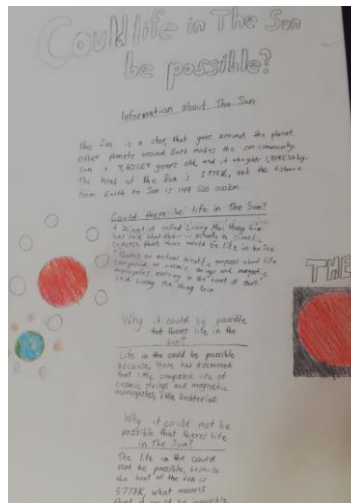 Could life in The Sun
be possible?
Information about The Sun
The Sun is a star, that goes around the planet.
Other planets around Earth makes the sun community.
Sun is years old, and it weights
The heat of the Sun is 5778K, and the distance
from Earth to Sun is 149 600 000km.
Could there be life in The Sun?
A scientist called
has said that there is actually a
that there would be life in
an actual scientific proposal about life
composed on cosmic strings and magnetic
monopoles evolving in the heart of stars."
said
THE
Why it could be possible
that theres life in the
Sun?
Life in the could be possible
because, there has discovered
that life composed life of
cosmic strings and magnetic
monopoles, like bacterias.
Why it could not be
possible that theres life
in The Sun?
The life in the could
not be possible, because
the heat of the sun is
5778K, what means
that it could be impossible